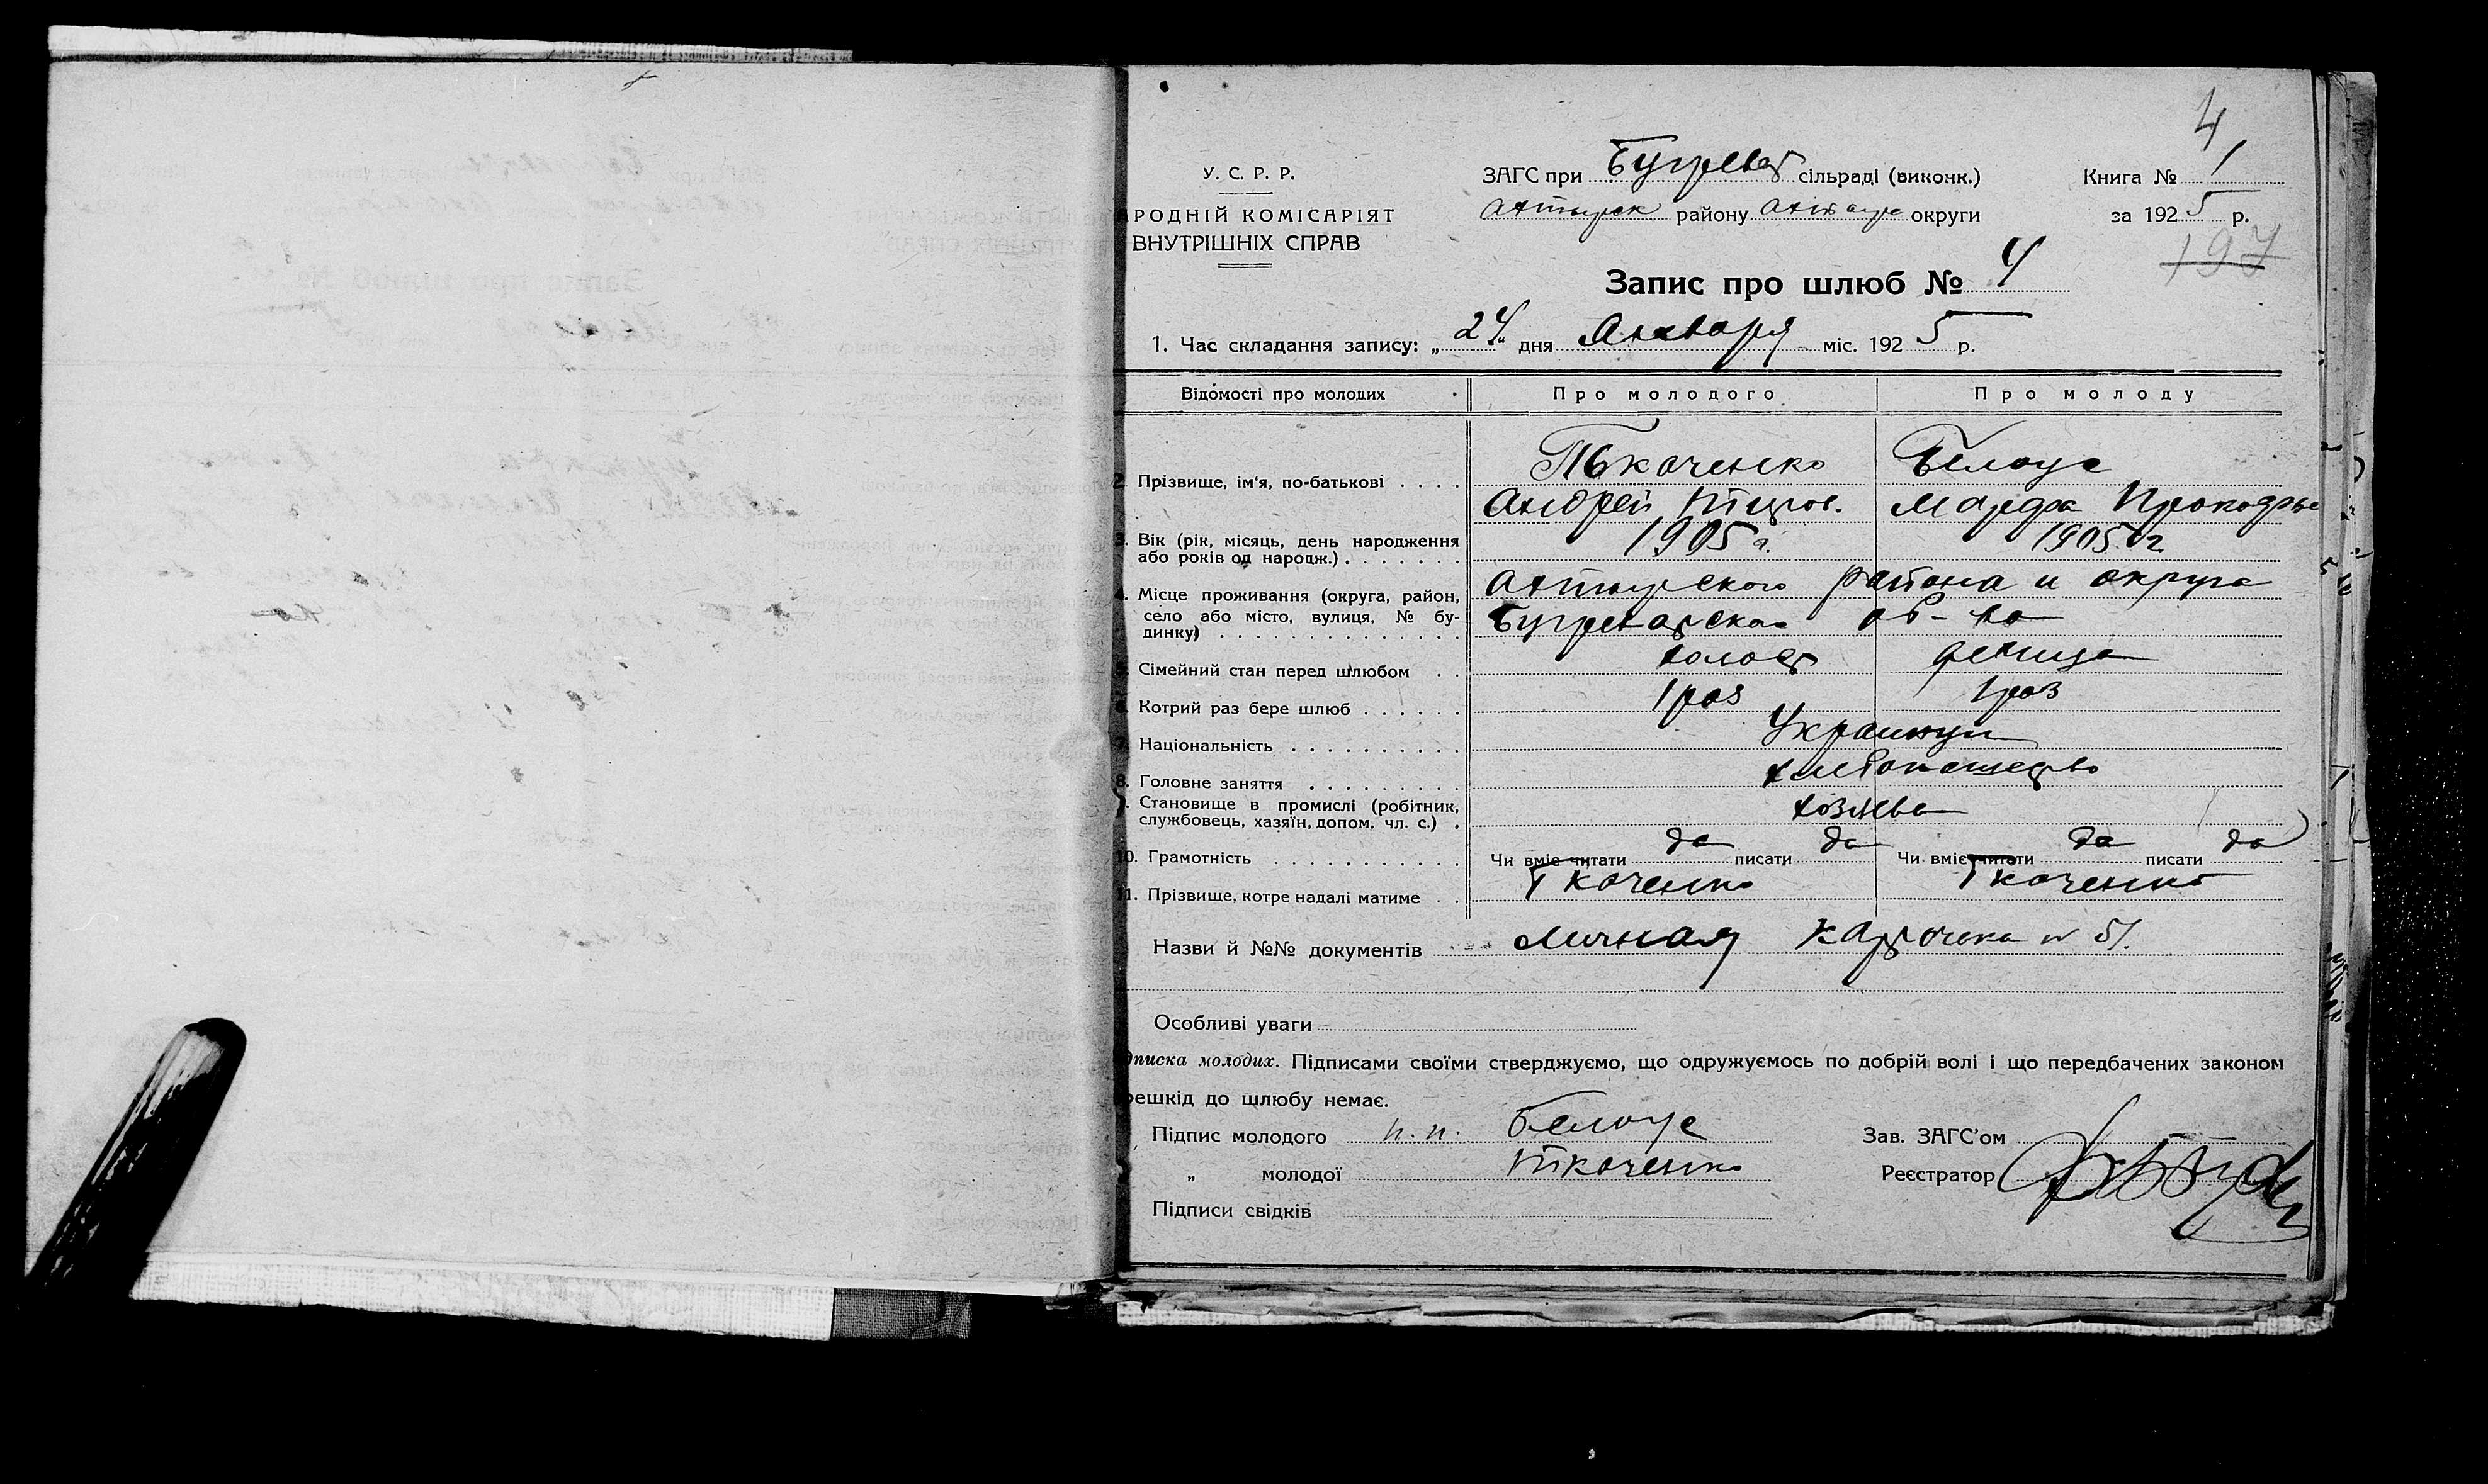 4
У. С. Р. Р.
РОДНІЙ КОМІСАРІЯТ
ВНУТРІШНІХ СПРАВ
ЗАГС при Бугреват сільраді (виконк.)
Ахтырск району Ахтыр округи
Книга № 1
за 1925 р.
197
Запис про шлюб № 4
1. Час складання запису: „24" дня Января міс. 1925 р.
Відомості про молодих Про молодого Про молоду
2. Прізвище, ім'я, по-батькові Ткаченко Белоус
Андрей Титов. Марфа Прокофьев
3. Вік (рік, місяць, день народження або років од народж.) 1905 г. 1905 г.
4. Місце проживання (округа, район, село або місто, вулиця, № будинку) Ахтырского района и округа
Бугреватского об-ва
5. Сімейний стан перед шлюбом холост девица
6. Котрий раз бере шлюб 1 раз 1 раз
7. Національність Украинцы
8. Головне заняття хлебопашество
9. Становище в промислі (робітник, службовець, хазяїн, допом, чл. с.) хозяева
10. Грамотність Чи вміє читати да писати да Чи вміє читати да писати да
11. Прізвище, котре надалі матиме Ткаченко Ткаченко
Назви й №№ документів Личная карточка № 51.
Особливі уваги
дписка молодих. Підписами своїми стверджуємо, що одружуємось по добрій волі і що передбачених законом
решкід до шлюбу немає.
Підпис молодого п. п. Белоус Зав. ЗАГС'ом
„ молодої Ткаченко Реєстратор
Підписи свідків